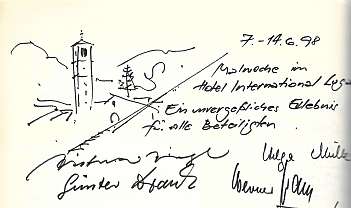 7.-14.6.98
Malwoche im
Hotel International Lug
Ein unvergeßliches Erlebnis
für alle Beteiligten.
Helga Müll
Günter
Werner